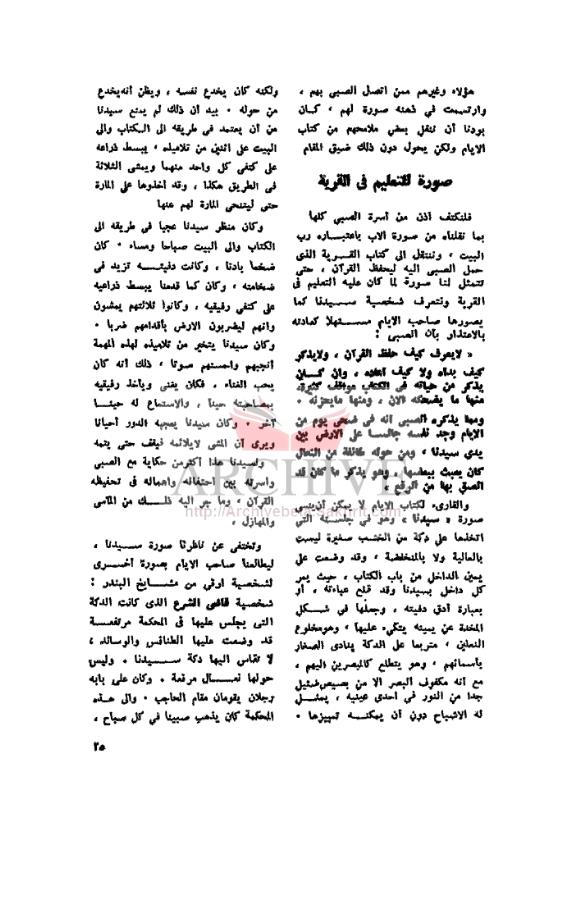 هؤلاء وغيرهم ممن اتصل الصبى بهم ،
وارتسمت في ذهنه صورة لهم ، كان
بودنا أن ننقل بعض ملامحهم من كتاب
الايام ولكن يحول دون ذلك ضيق المقام
صورة للتعليم فى القرية
فلنكتف اذن من أسرة الصبى كلها
بما نقلناه من صورة الاب باعتباره رب
البيت ، وننتقل الى كتاب القرية الذى
حمل الصبى اليه ليحفظ القرآن ، حتى
تتمثل لنا صورة لما كان عليه التعليم فى
القرية ونتعرف شخصية سيدنا كما
يصورها صاحب الايام مستهلا كعادته
بالاعتذار بأن الصبى :
« لايعرف كيف حفظ القرآن ، ولايذكر
كيف بدأه ولا كيف أعاده ، وان كان
يذكر من حياته فى الكتاب مواقف كثيرة،
منها ما يضحكه الآن ، ومنها مايحزنه .
ومما يذكره الصبى أنه فى ضحى يوم من
الايام وجد نفسه جالسا على الارض بين
يدى سيدنا ، ومن حوله طائفة من النعال
كان يعبث ببعضها ، وهو يذكر ما كان قد
الصق بها من الرقع »
والقارىء لكتاب الايام لا يمكن أن ينسى
صورة « سيدنا » وهو فى جلسته التى
اتخذها على دكة من الخشب صغيرة ليست
بالعالية ولا بالمنخفضة ، وقد وضعت على
يمين الداخل من باب الكتاب ، حيث يمر
كل داخل بسيدنا وقد خلع عباءته ، أو
بعبارة أدق دفيته ، وجعلها فى شكل
المخدة عن يمينه يتكىء عليها ، وهومخلوع
النعلين ، متربعا على الدكة ينادى الصغار
بأسمائهم ، وهو يتطلع كالمبصرين اليهم ،
مع أنه مكفوف البصر الا من بصيص ضئيل
جدا من النور فى احدى عينيه ، يمثل
له الاشباح دون أن يمكنه تمييزها .
ولكنه كان يخدع نفسه ، ويظن أنه يخدع
من حوله . بيد أن ذلك لم يمنع سيدنا
من أن يعتمد فى طريقه الى الكتاب والى
البيت على اثنين من تلاميذه ، يبسط ذراعه
على كتفى كل واحد منهما ويمشى الثلاثة
فى الطريق هكذا ، وقد أخذوها على المارة
حتى ليتنحى المارة لهم عنها
وكان منظر سيدنا عجبا فى طريقه الى
الكتاب والى البيت صباحا ومساء . كان
ضخما بادنا ، وكانت دفيته تزيد فى
ضخامته ، وكان كما قدمنا يبسط ذراعيه
على كتفى رفيقيه ، وكانوا ثلاثتهم يمشون
وانهم ليضربون الارض بأقدامهم ضربا .
وكان سيدنا يتخير من تلاميذه لهذه المهمة
أنجبهم وأحسنهم صوتا ، ذلك أنه كان
يحب الغناء . فكان يغنى ويأخذ رفيقيه
بمصاحبته حينا ، والاستماع له حينا
آخر . وكان سيدنا يعجبه الدور أحيانا
ويرى أن المشى لايلائمه فيقف حتى يتمه
ولسيدنا هذا أكثر من حكاية مع الصبى
وأسرته بين احتفائه واهماله فى تحفيظه
القرآن ، وما جر اليه ذلك من المآسى
والمهازل .
وتختفى عن ناظرنا صورة سيدنا ،
ليطالعنا صاحب الايام بصورة أخرى
لشخصية أوقى من مشايخ البندر :
شخصية قاضى الشرع الذى كانت الدكة
التى يجلس عليها فى المحكمة مرتفعة
قد وضعت عليها الطنافس والوسائد ،
لا تقاس اليها دكة سيدنا . وليس
حولها نعال مرقعة . وكان على بابه
رجلان يقومان مقام الحاجب . والى هذه
المحكمة كان يذهب صبينا فى كل صباح ،
٢٥
ARCHIVE